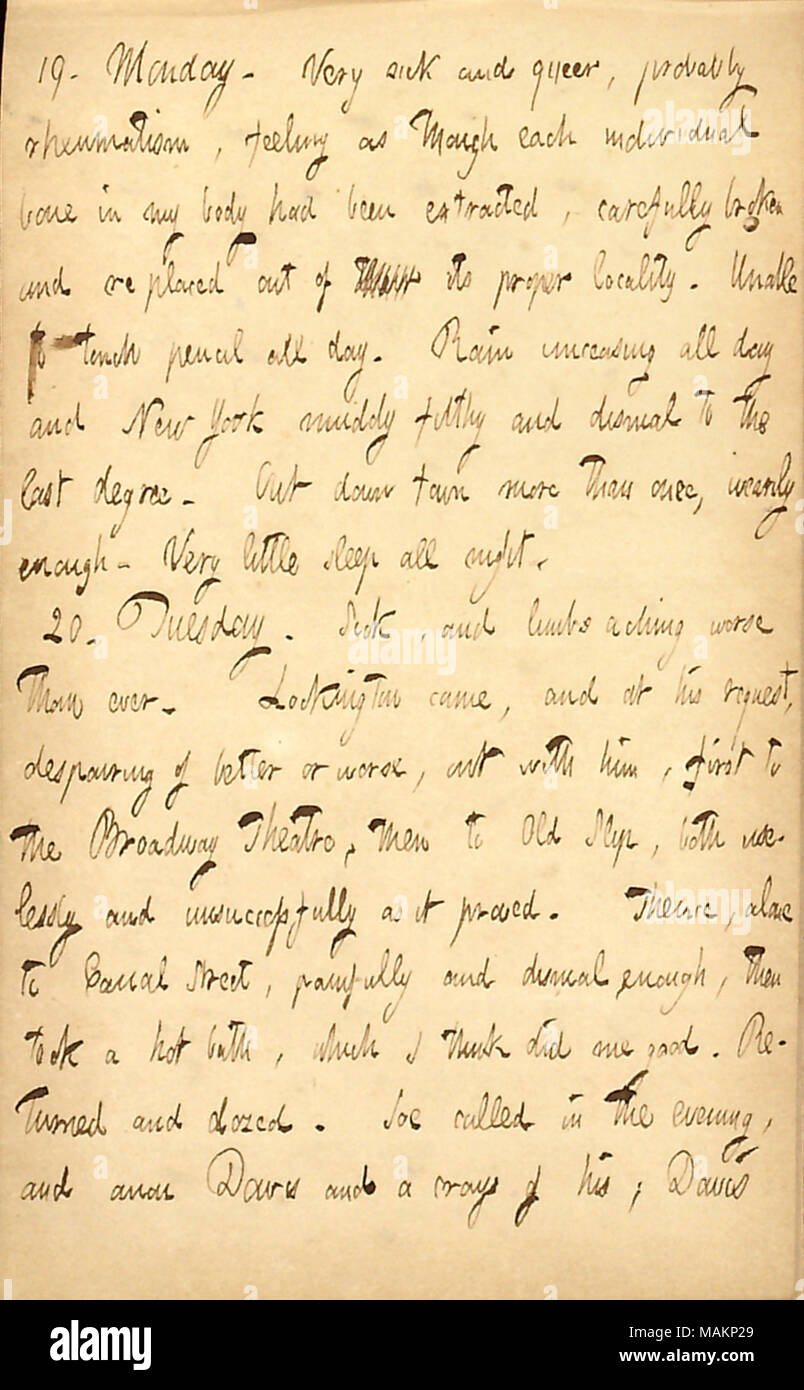 19. Monday. Very sick and queer, probably
rheumatism, feeling as though each individual
bone in my body had been extracted, carefully broken
and replaced out of its proper locality. Unable
to touch pencil all day. Rain unceasing all day
and New York muddy filthy and dismal to the
last degree. Out down town more than once, wearily
enough. Very little sleep all night.
20. Tuesday. Sick, and limbs aching worse
than ever. Lockington came, and at his request,
despairing of better or worse, out with him, first to
the Broadway Theatre, then to Old Slip, both use-
lessly and unsuccessfully as it proved. Thence, alone
to Canal Street, painfully and dismal enough, then
took a hot bath, which I think did me good. Re-
turned and dozed. Joe called in the evening,
and anon Davis and a of his; Davis
alamy
Image ID: MAKP29
www.alamy.com